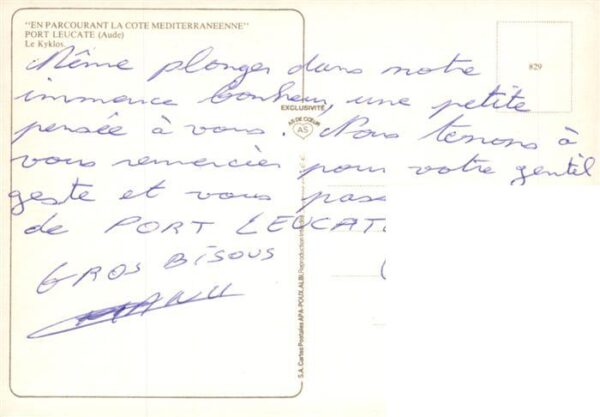 "EN PARCOURANT LA COTE MEDITERRANEENNE"
PORT LEUCATE (Aude)
Le Kyklos.
829
Même plonger dans notre
immence bonheur, une petite
pensée à vous. Nous tenons à
vous remercier pour votre gentil
geste et vous
de PORT LEUCAT
GROS BISOUS
EXCLUSIVITÉ
AS DE CŒUR
AS
S.A. Cartes Postales APA-POUX, ALBI, Reproduction